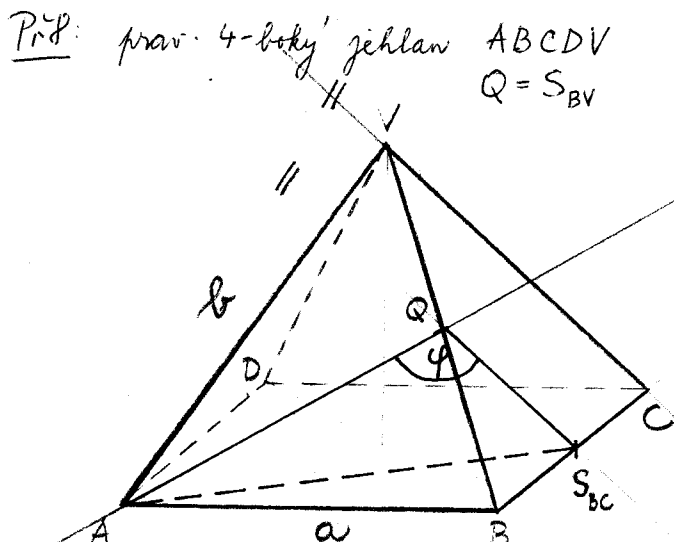 Př8: prav. 4-boký jehlan ABCDV
Q = S_BV
V
b
Q
φ
D
C
S_BC
A
a
B